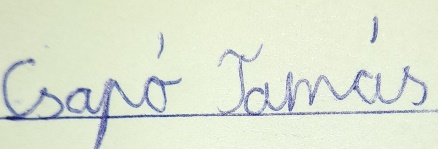 Csapó Tamás